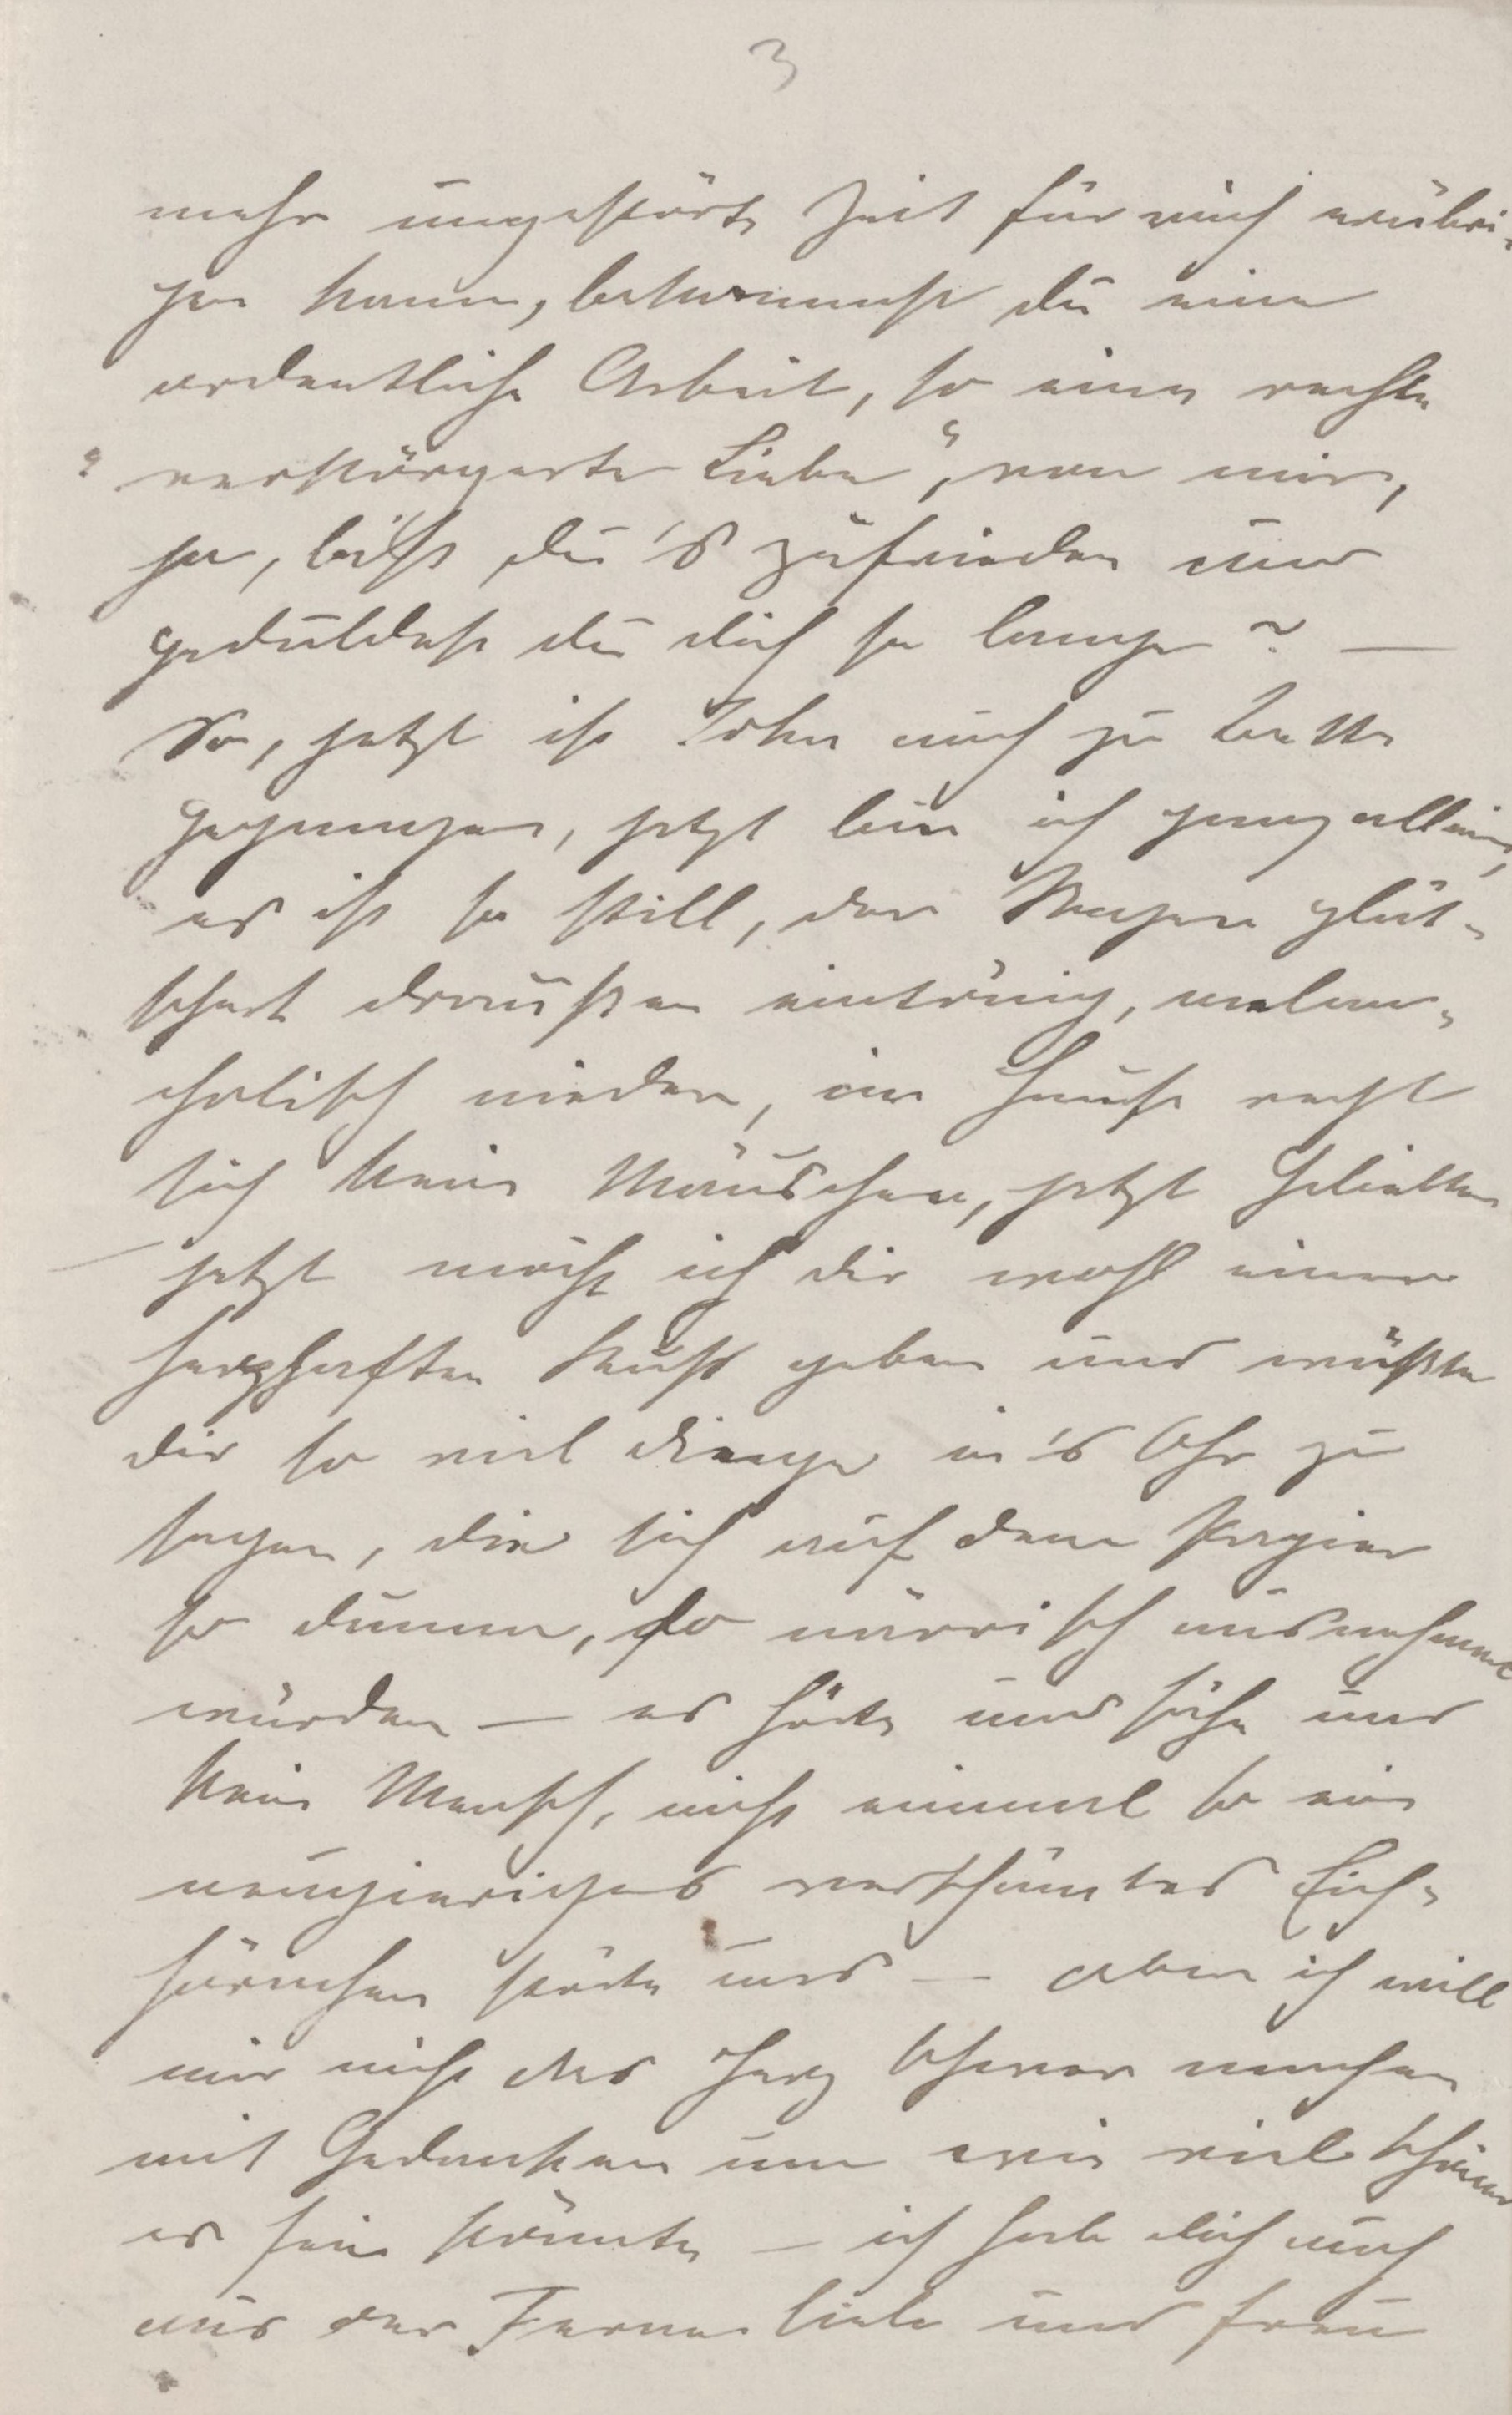 3
mehr ungestörte Zeit für mich erübri-
gen kann, bekommst du eine
ordentliche Arbeit, so eine rechte
"verkörperte Liebe", von mir,
ja, bist du's zufrieden und
geduldest du dich so lange? —
So, jetzt ist John auch zu Bette
gegangen, jetzt bin ich ganz allein,
es ist so still, der Regen plät-
schert draußen eintönig, melan-
cholisch nieder, im Hause regt
sich kein Mäuschen, jetzt Geliebter
— jetzt möcht ich dir wohl einen
herzhaften Kuß geben und wüßte
dir so viel Dinge in's Ohr zu
sagen, die sich auf dem Papier
so dumm, so närrisch ausnehmen
würden — es hörte und sähe uns
kein Mensch, nicht einmal so ein
neugieriges verschämtes Eich-
hörnchen störte uns — aber ich will
mir nicht das Herz schwer machen
mit Gedanken um wie viel schöner
es sein könnte — ich hab dich auch
aus der Ferne lieb und freu